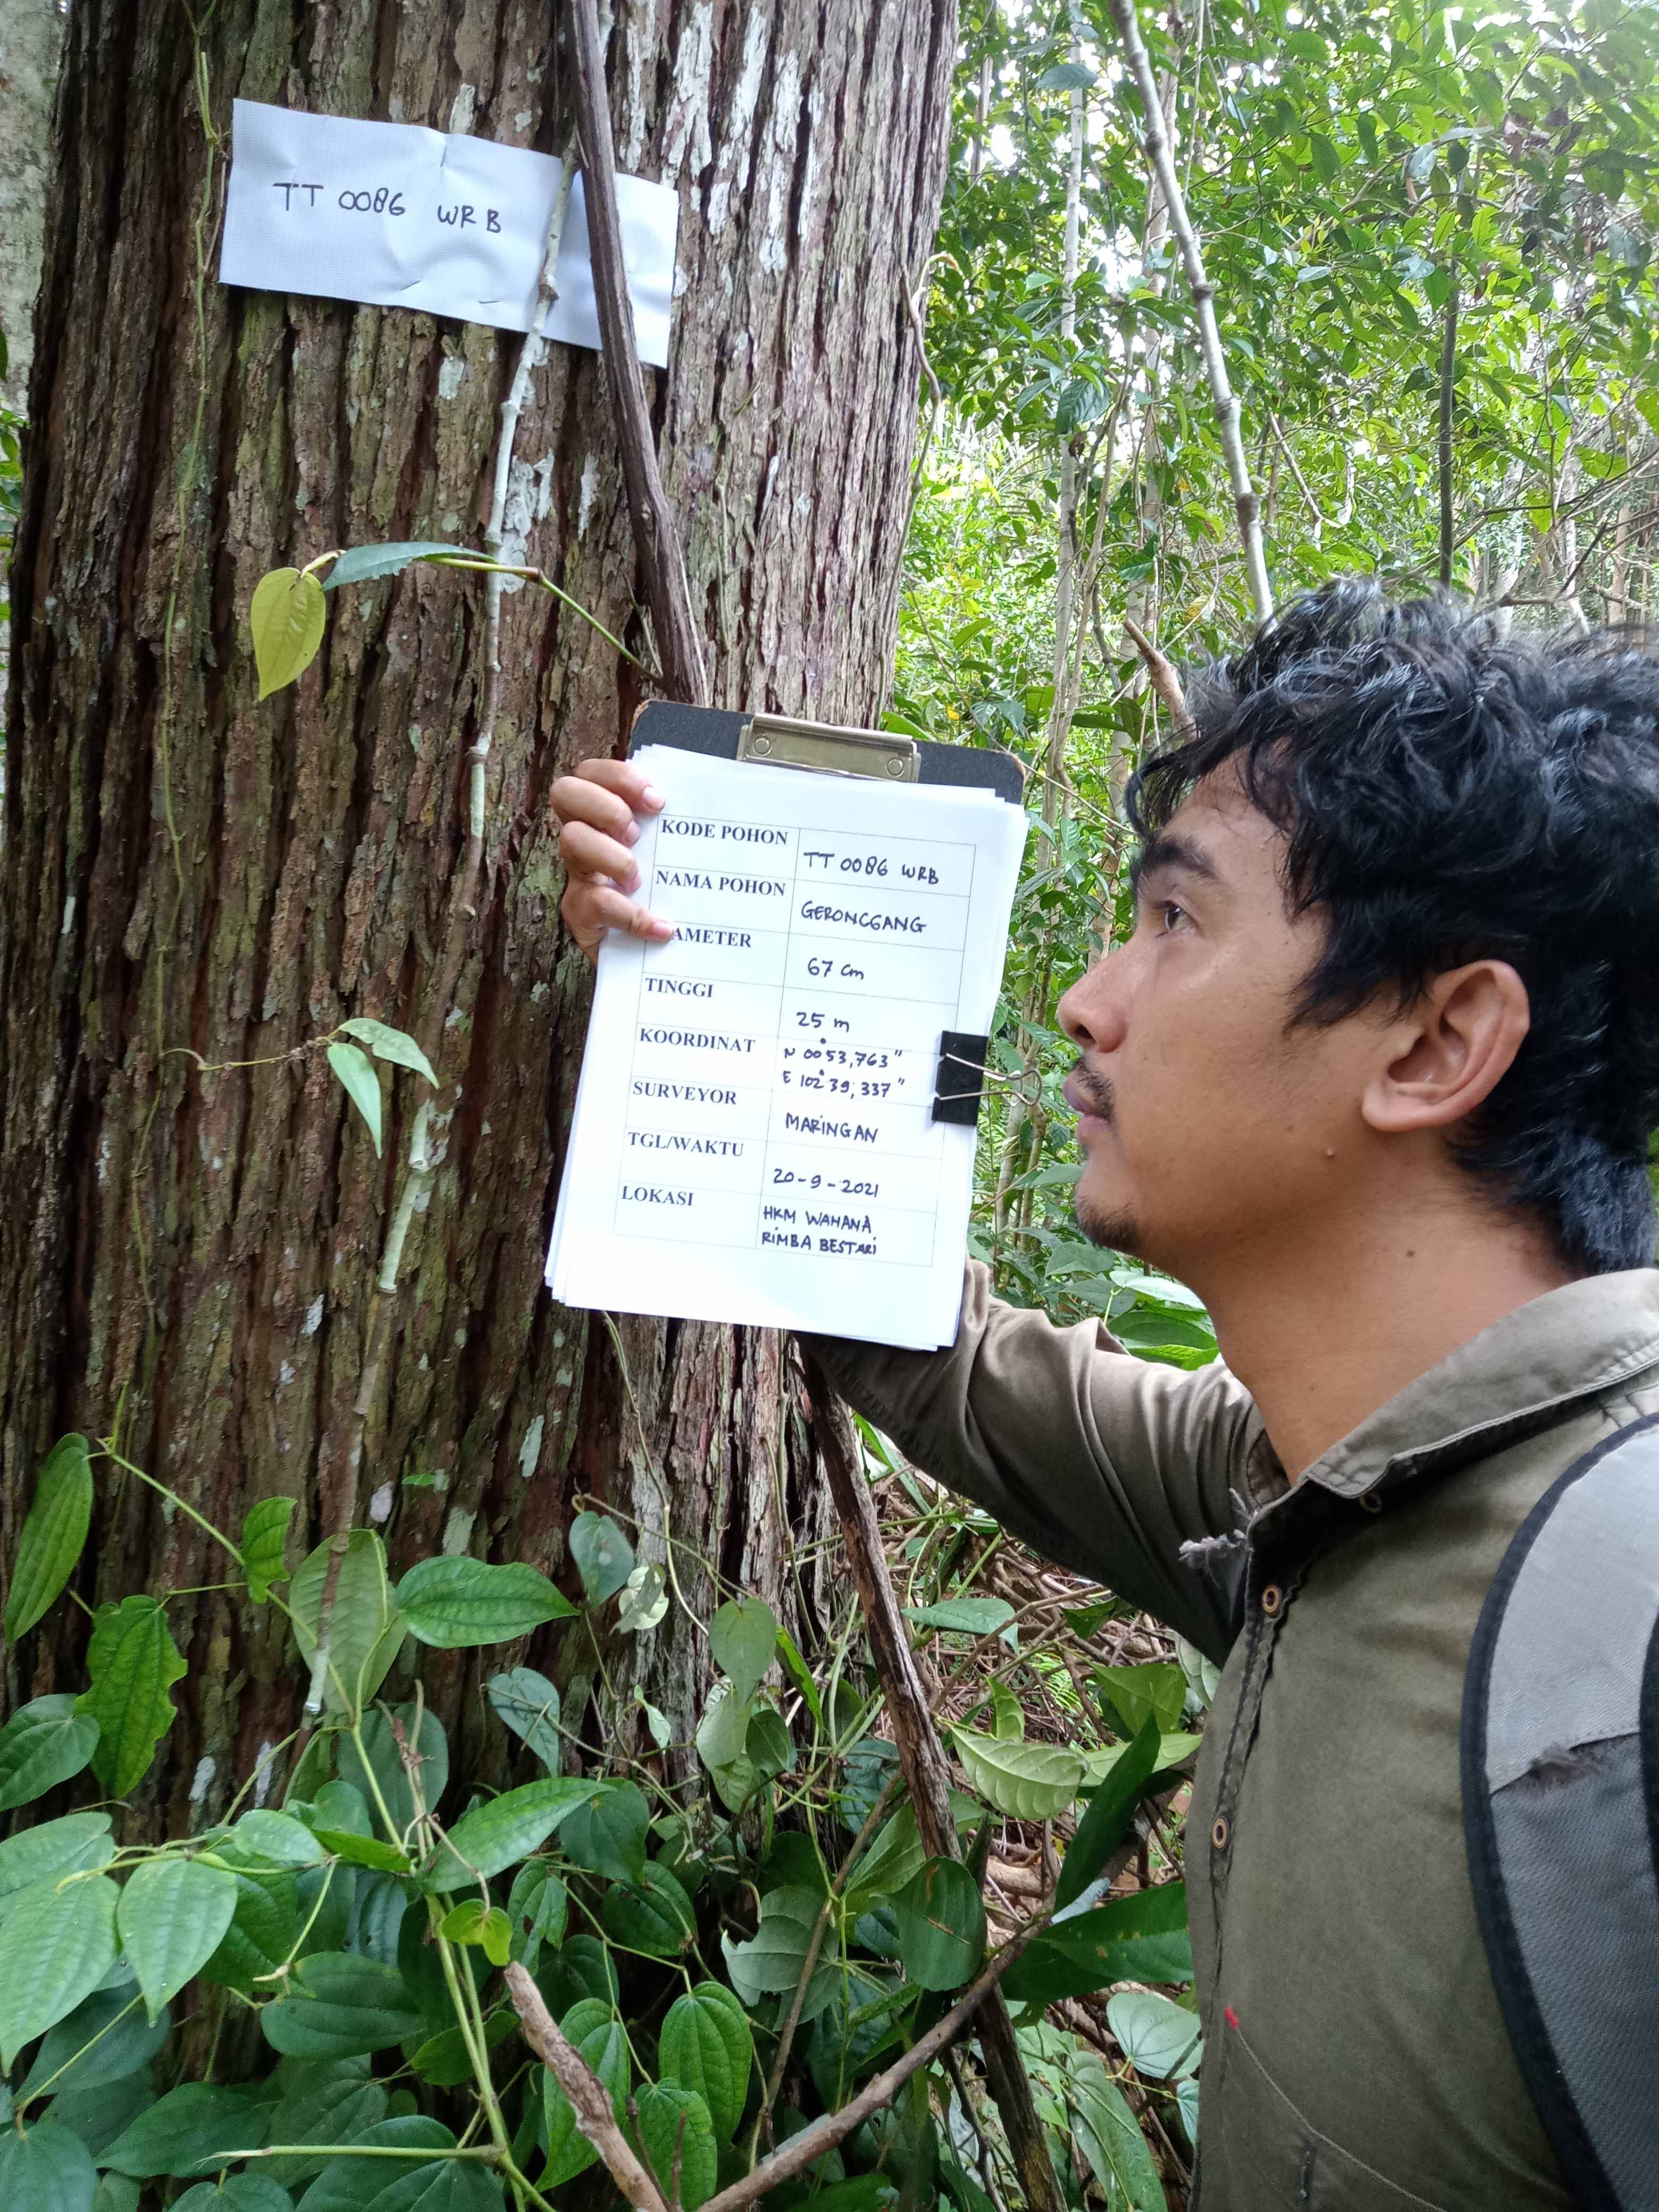 TT 0086 WRB
KODE POHON TT 0086 WRB
NAMA POHON GERONGGANG
AMETER 67 cm
TINGGI 25 m
KOORDINAT N 00°53,763"
E 102°39,337"
SURVEYOR MARINGAN
TGL/WAKTU 20-9-2021
LOKASI HKM WAHANA
RIMBA BESTARI